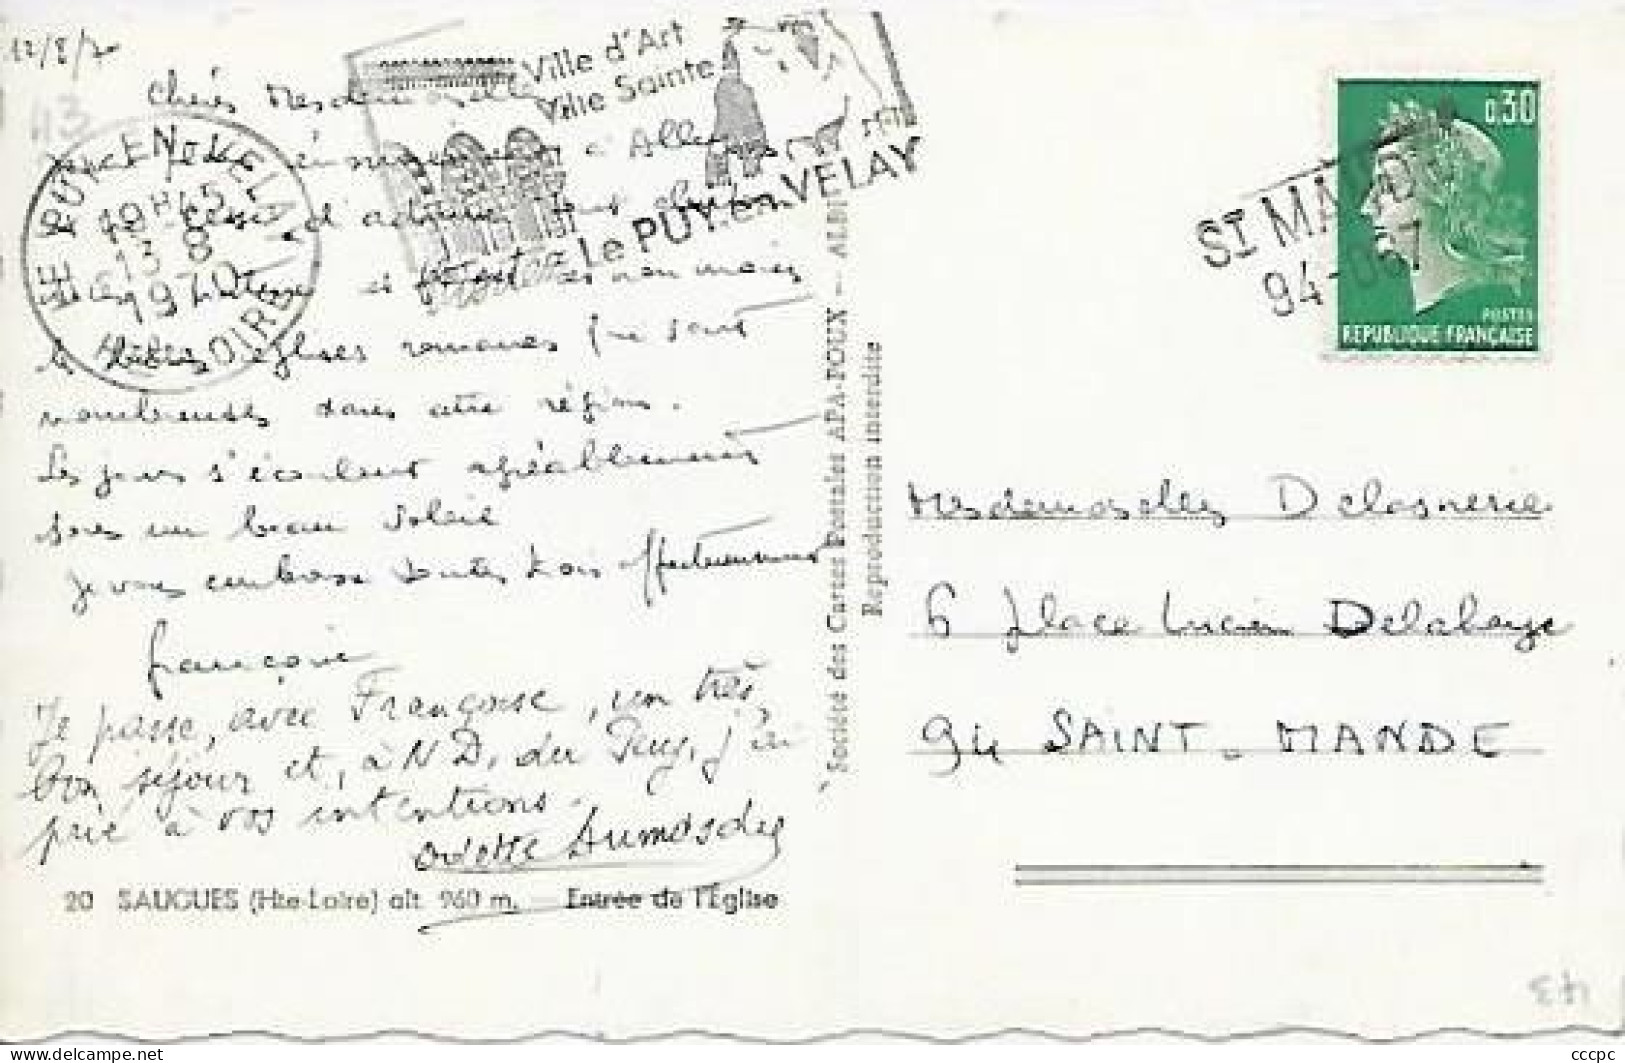 12/8/70
43
Chères Mesdemoiselles
à Allègre
d'admirer
et
les belles églises romanes qui sont
nombreuses dans cette région.
Les jours s'écoulent agréablement
sous un beau soleil
Je vous embrasse toutes trois affectueusement
Françoise
Je passe, avec Françoise, un très
bon séjour et, à N.D. du Puy, j'ai
prié à vos intentions.
Odette
20 SAUGUES (Hte-Loire) alt. 960 m. — Entrée de l'Église
LE PUY EN VELAY
18H45
13-8
1970
HTE LOIRE
Ville d'Art
Ville Sainte
le PUY.en.VELAY
Société des Cartes Postales APA-POUX — ALBI
Reproduction interdite
0,30
POSTES
REPUBLIQUE FRANÇAISE
ST MANDE
94-067
Mesdemoiselles Delasnerie
6 place Lucien Delahaye
94 SAINT-MANDE
43
cccpc